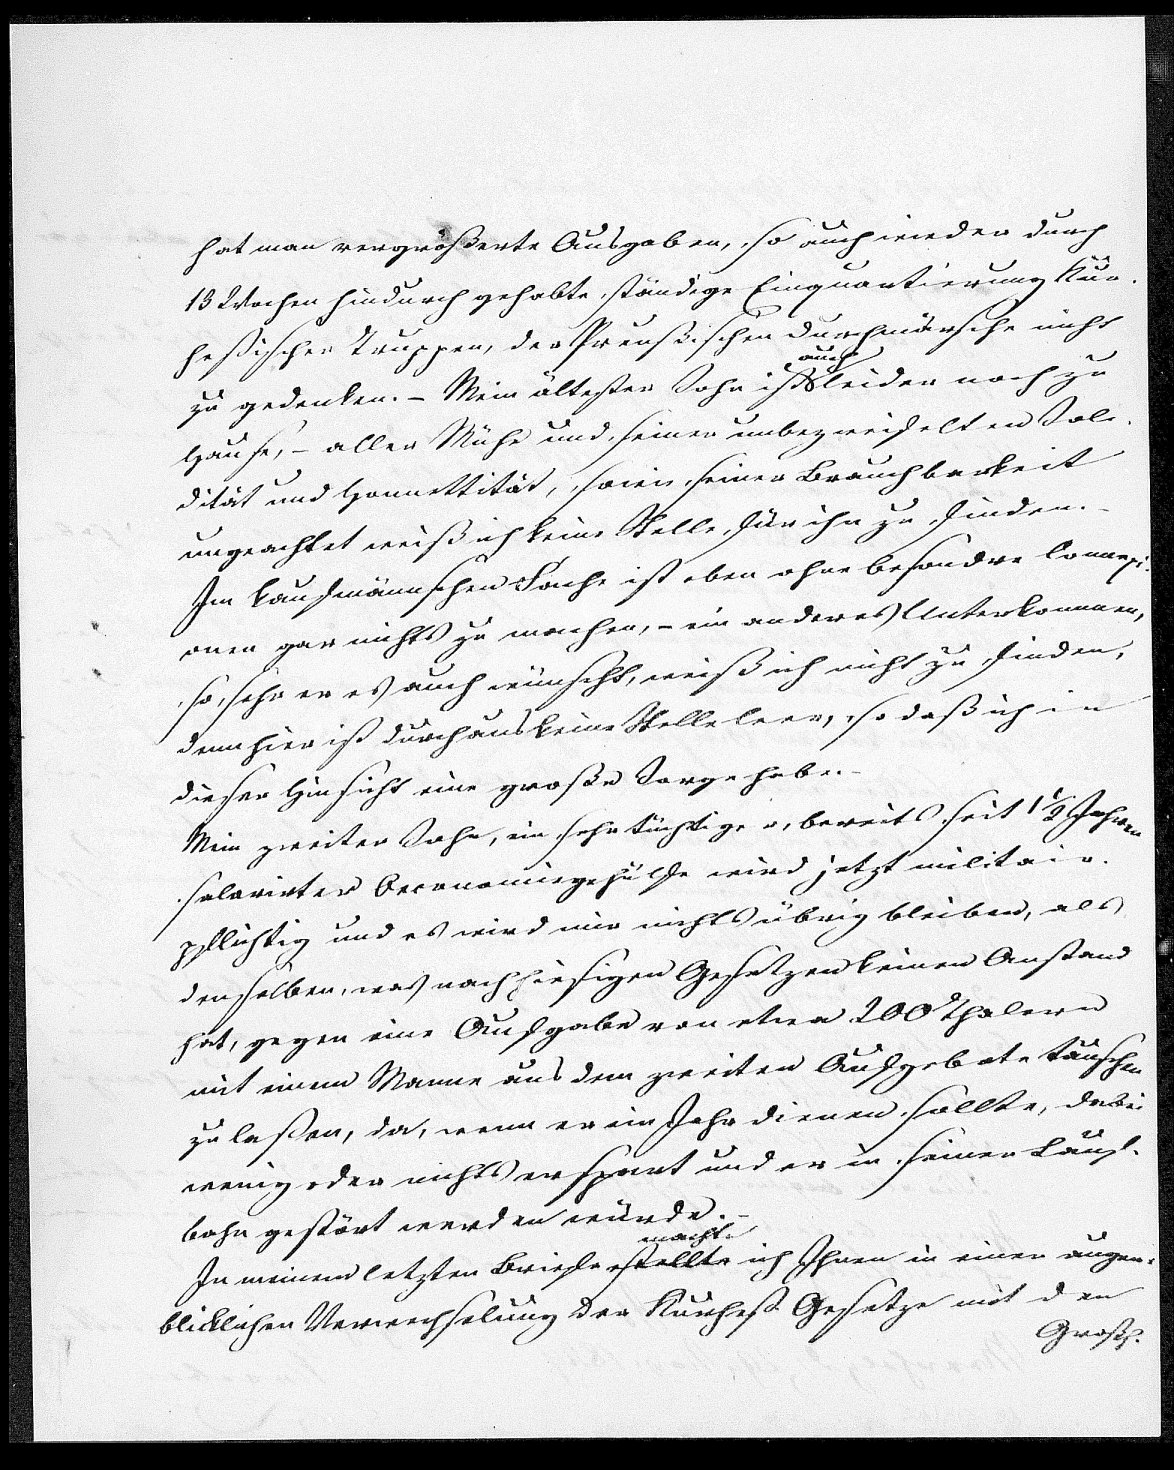 hat man vergrößerte Ausgaben, so auch wieder durch
13 Wochen hindurch gehabte ständige Einquartierung Kur-
hessischer Truppen, der Preußischen Durchmärsche nicht
zu gedenken. – Mein ältester Sohn ist auch leider noch zu
Hause, – aller Mühe und seiner unbezweifelten Soli-
dität und Honnettität, sowie seiner Brauchbarkeit
ungeachtet weiß ich keine Stelle für ihn zu finden. –
Im kaufmännschen Fache ist eben ohne besondre Connexi-
onen gar nichts zu machen, – ein anderes Unterkommen,
so sehr er es auch wünscht, weiß ich nicht zu finden,
denn hier ist durchaus keine Stelle leer, so daß ich in
dieser Hinsicht eine große Sorge habe. –
Mein zweiter Sohn, ein sehr tüchtiger, bereits seit 1 1/2 Jahren
salarirter Oeconomiegehülfe wird jetzt militair-
pflichtig und es wird mir nichts übrig bleiben, als
denselben, was nach hiesigen Gesetzen keinen Anstand
hat, gegen eine Aufgabe von etwa 200 Thalern
mit einem Manne aus dem zweiten Aufgebote tauschen
zu laßen, da, wenn er ein Jahr dienen sollte, dabei
wenig oder nichts erspart und er in seiner Lauf-
bahn gestört werden würde. –
In meinem letzten Briefe stellte machte ich Ihnen in einer augen-
blicklichen Verwechselung der Kurheß. Gesetze mit den
Großh.